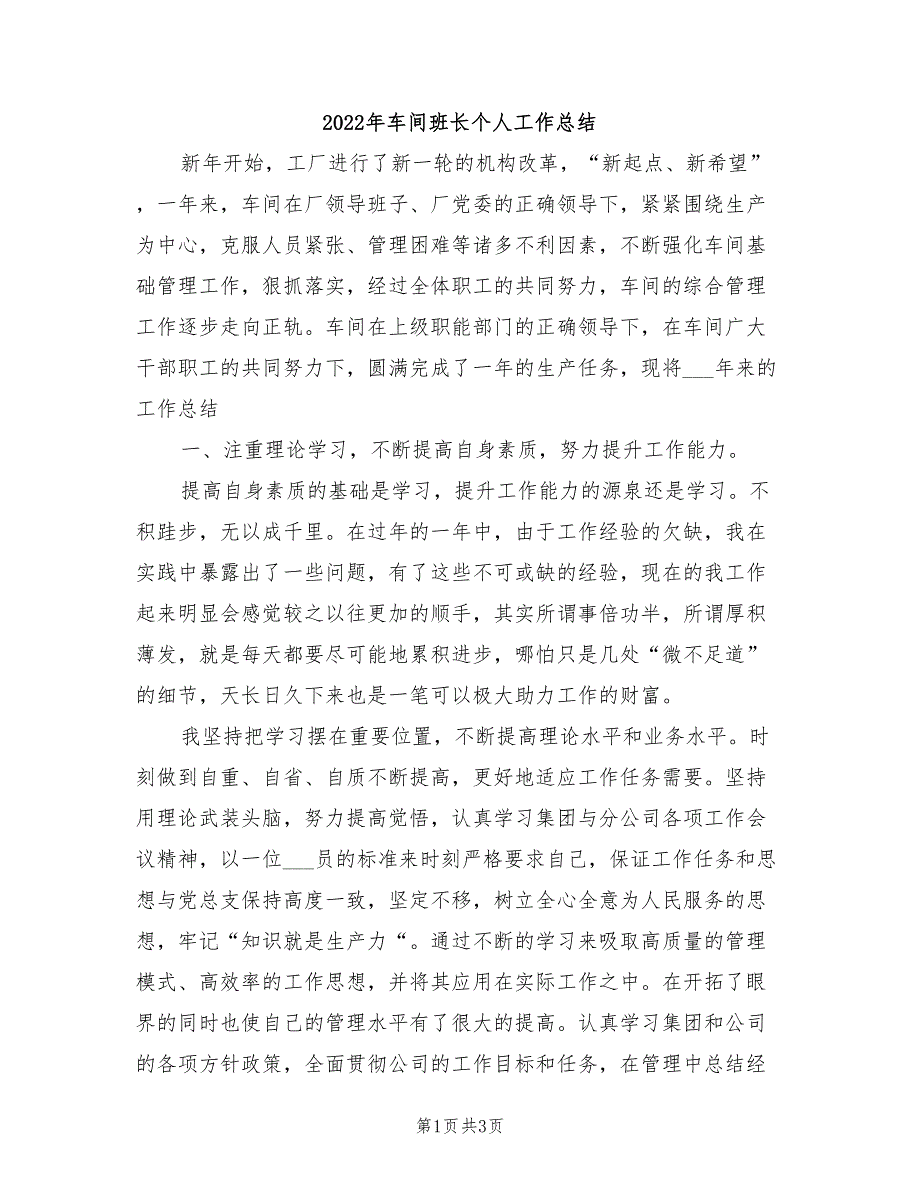 2022年车间班长个人工作总结
新年开始，工厂进行了新一轮的机构改革，“新起点、新希望”
，一年来，车间在厂领导班子、厂党委的正确领导下，紧紧围绕生产
为中心，克服人员紧张、管理困难等诸多不利因素，不断强化车间基
础管理工作，狠抓落实，经过全体职工的共同努力，车间的综合管理
工作逐步走向正轨。车间在上级职能部门的正确领导下，在车间广大
干部职工的共同努力下，圆满完成了一年的生产任务，现将___年来的
工作总结
一、注重理论学习，不断提高自身素质，努力提升工作能力。
提高自身素质的基础是学习，提升工作能力的源泉还是学习。不
积跬步，无以成千里。在过年的一年中，由于工作经验的欠缺，我在
实践中暴露出了一些问题，有了这些不可或缺的经验，现在的我工作
起来明显会感觉较之以往更加的顺手，其实所谓事倍功半，所谓厚积
薄发，就是每天都要尽可能地累积进步，哪怕只是几处“微不足道”
的细节，天长日久下来也是一笔可以极大助力工作的财富。
我坚持把学习摆在重要位置，不断提高理论水平和业务水平。时
刻做到自重、自省、自质不断提高，更好地适应工作任务需要。坚持
用理论武装头脑，努力提高觉悟，认真学习集团与分公司各项工作会
议精神，以一位___员的标准来时刻严格要求自己，保证工作任务和思
想与党总支保持高度一致，坚定不移，树立全心全意为人民服务的思
想，牢记“知识就是生产力“。通过不断的学习来吸取高质量的管理
模式、高效率的工作思想，并将其应用在实际工作之中。在开拓了眼
界的同时也使自己的管理水平有了很大的提高。认真学习集团和公司
的各项方针政策，全面贯彻公司的工作目标和任务，在管理中总结经
第1页共3页